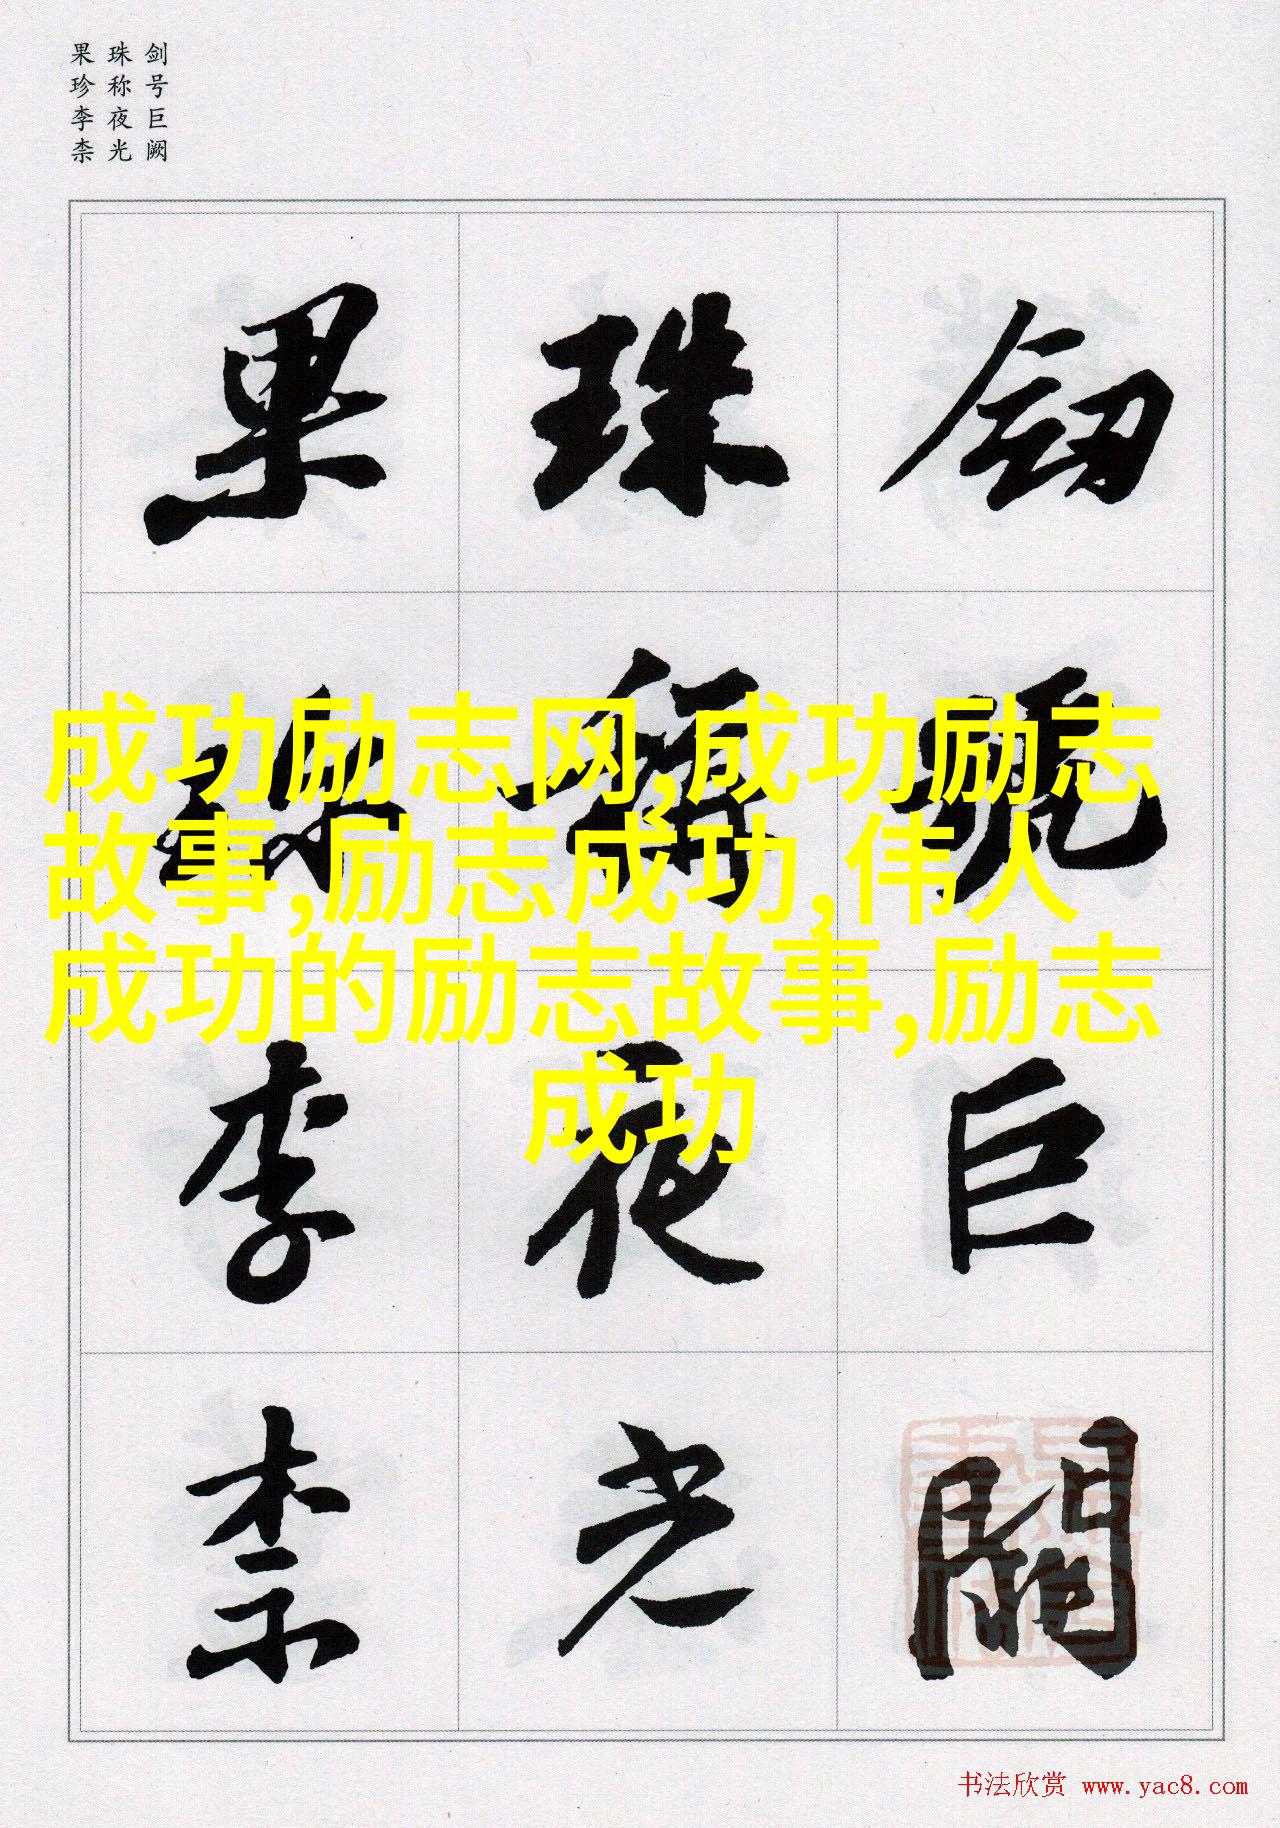 剑号巨阙
珠称夜光
果珍李柰
劍號巨闕
珠稱夜光
果珍李柰
成功励志网,成功励志
故事,励志成功,伟人
成功的励志故事,励志
成功
书法欣赏 www.yac8.com